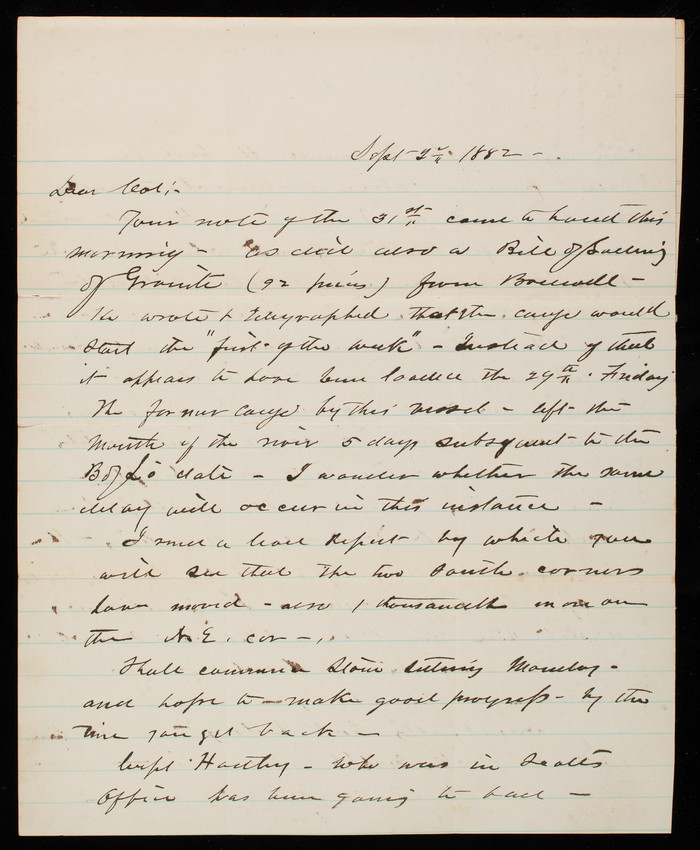 Sept 2" 1882 -
Dear Col:-
Your note of the 31st came to hand this
morning - as did also a Bill of Lading
of Granite (92 pieces) from Bodwell -
He wrote & telegraphed that the cargo would
start the "first of the week" - Instead of that
it appears to have been loaded the 29th. Friday
The former cargo by this vessel - left the
mouth of the river 5 days subsequent to the
B of L's date - I wonder whether the same
delay will occur in this instance -
I send a level Report by which you
will see that the two South corners
have moved - also 1 thousandth more on
the N.E. cor -,
Shall commence Stone setting Monday -
and hope to make good progress - by the
time you get back -
Capt. - who was in
Office has been going to bad -